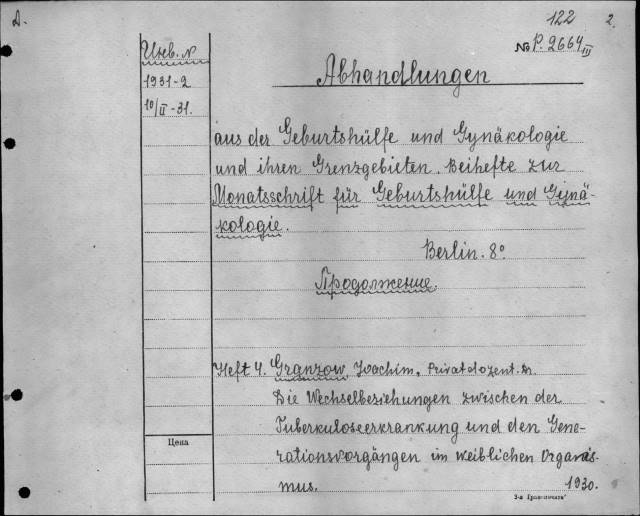 A.
122
2.
№ P. 2664 III
Инв. №
1931-2
10/II-31.
Abhandlungen
aus der Geburtshülfe und Gynäkologie
und ihren Grenzgebieten. Beihefte zur
Monatsschrift für Geburtshülfe und Gynä-
kologie.
Berlin. 8°
Продолжение.
Heft 4. Granzow, Joachim, Privatdozent. Dr.
Die Wechselbeziehungen zwischen der
Tuberkuloseerkrankung und den Gene-
rationsvorgängen im weiblichen Organis-
mus.
1930.
Цена